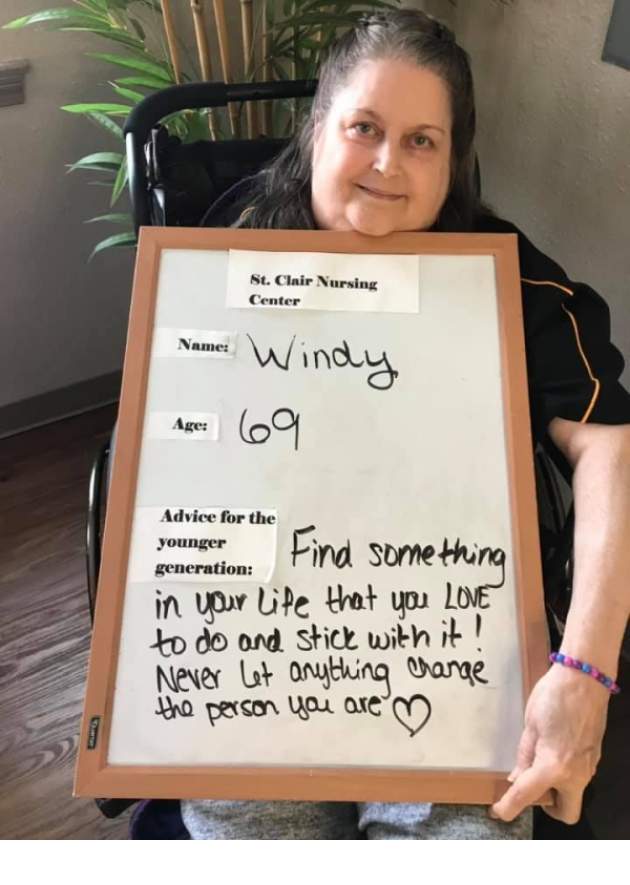 St. Clair Nursing
Center
Name: Windy
Age: 69
Advice for the
younger
generation: Find something
in your life that you LOVE
to do and stick with it!
Never let anything change
the person you are ♡